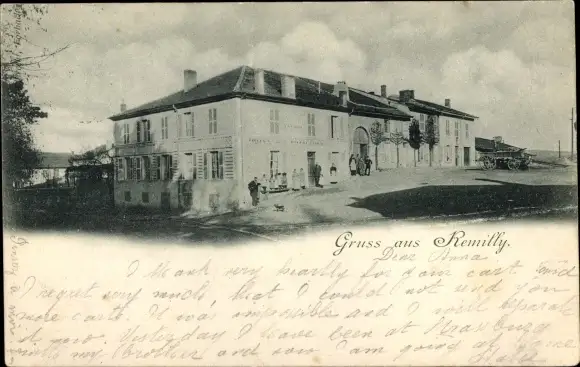 Gruss aus Remilly.
Dear Anna
I thank very heartly for your cart and
I regret very much, that I could not send you
more carts. It was impossible and I will
it now. Yesterday I have been at Strassburg
with my brother and son I am going at home